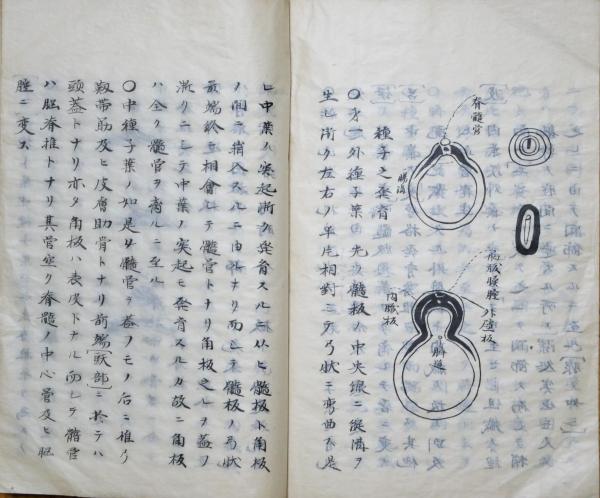 脊髄管
腸溝
角板
腹腔
外壁板
内臓板
腸道
種子之発育
〇才一外種子葉 由 先ツ髄板ノ中央線ニ従溝ヲ
生シ漸ク左右ノ半片相對シテ弓状ニ弯曲ス是
ヒ中葉ノ突起漸ク発育スルニ从ヒ髄板ト角板
ノ間ニ稍入スルニ由テナリ而シテ髄板ノ弓状
最端終ニ相會シテ髄管トナリ角板之レヲ蓋フ
漸クニシテ中葉ノ突起モ発育スルカ故ニ角板
ハ全ク髄管ヲ离ルニ至ル
〇中種子葉ノ如是 髄管ヲ蓋フモノ后ニ椎弓
靱帯筋及ヒ皮膚助骨トナリ前端(頭部)ニ於テハ
頭蓋トナリ亦タ角板ハ表皮トナル而シテ髄管
ハ脳脊推トナリ其管空ク脊髄ノ中心管及ヒ脳
腔ニ変ス